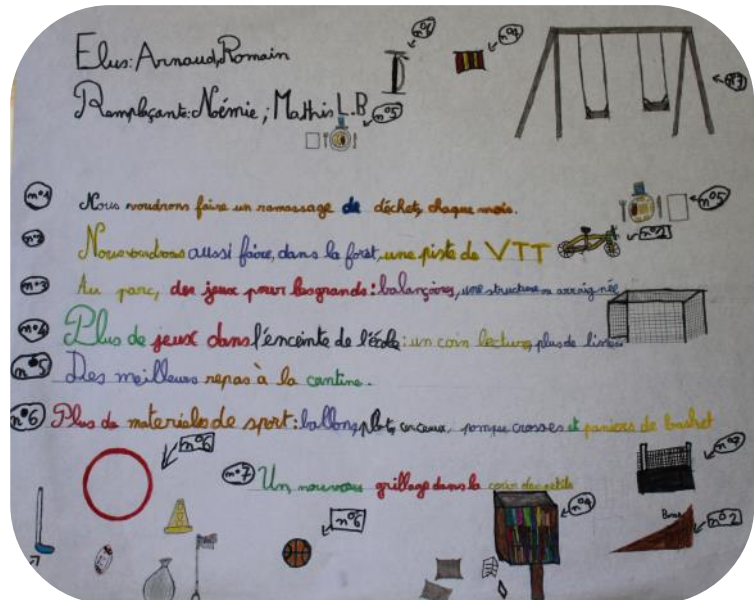 Elus: Arnaud, Romain
n°6
n°4
n°3
Remplaçants: Noémie ; Mathis L.B
n°5
n°1 Nous voudrons faire un ramassage de déchets, chaque mois.
n°5
n°2 Nous voudrons aussi faire, dans la forêt, une piste de VTT
n°2
n°3 Au parc, des jeux pour les grands: balançoires, une structure ou arraignée
n°4 Plus de jeux dans l'enceinte de l'école: un coin lecture, plus de livres
n°5 Des meilleurs repas à la cantine.
n°6 Plus de materiels de sport: ballons, plots, cerceaux, crosses et paniers de basket
n°6
n°7 Un nouveau grillage dans la cour des petits
n°7
n°6
n°4
n°2